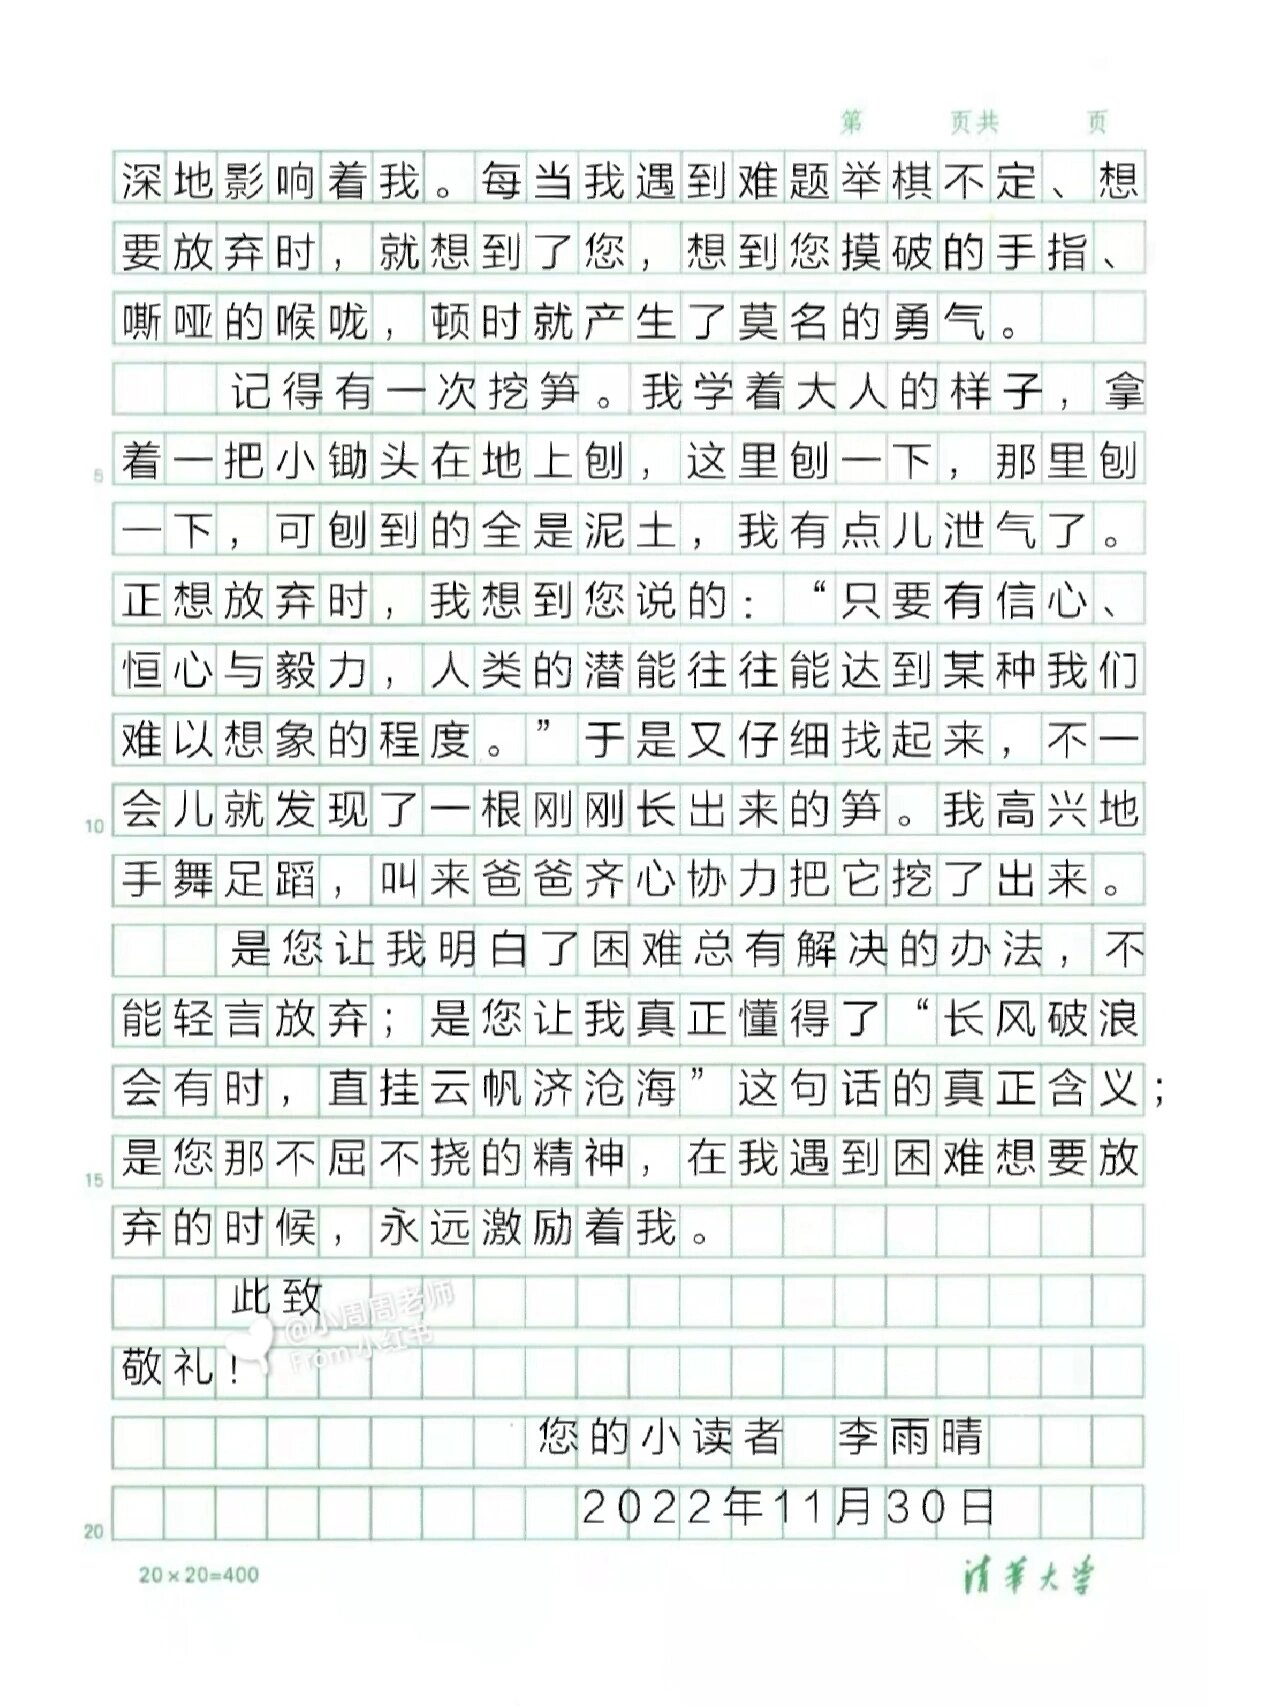 第 页共 页
深地影响着我。每当我遇到难题举棋不定、想
要放弃时，就想到了您，想到您摸破的手指、
嘶哑的喉咙，顿时就产生了莫名的勇气。
记得有一次挖笋。我学着大人的样子，拿
5 着一把小锄头在地上刨，这里刨一下，那里刨
一下，可刨到的全是泥土，我有点儿泄气了。
正想放弃时，我想到您说的：“只要有信心、
恒心与毅力，人类的潜能往往能达到某种我们
难以想象的程度。”于是又仔细找起来，不一
10 会儿就发现了一根刚刚长出来的笋。我高兴地
手舞足蹈，叫来爸爸齐心协力把它挖了出来。
是您让我明白了困难总有解决的办法，不
能轻言放弃；是您让我真正懂得了“长风破浪
会有时，直挂云帆济沧海”这句话的真正含义；
15 是您那不屈不挠的精神，在我遇到困难想要放
弃的时候，永远激励着我。
此致
@小周周老师
From 小红书
敬礼！
您的小读者 李雨晴
20 2022年11月30日
20×20=400 清华大学